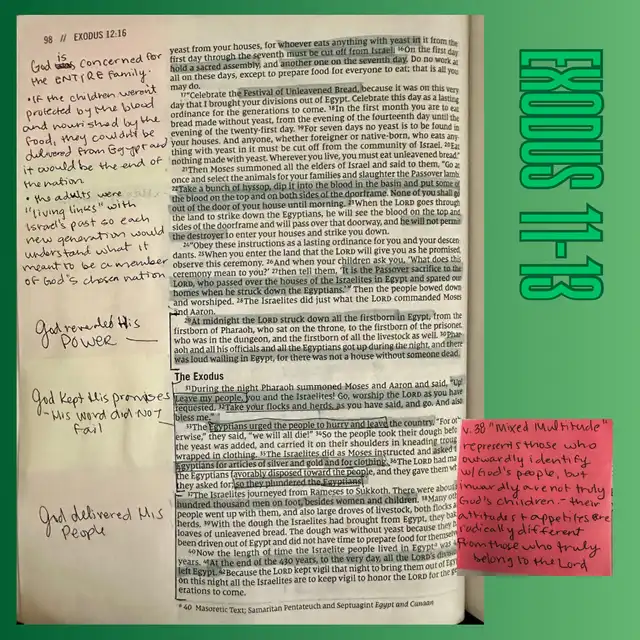 98 // EXODUS 12:16
God is concerned for
the ENTIRE family.
• IF the children weren't
protected by the blood
and nourished by the
food, they couldn't be
delivered from Egypt and
it would be the end of
the nation
• the adults were
"living links" with
Israel's past so each
new generation would
understand what it
meant to be a member
of God's chosen nation
God revealed His
POWER
God kept His promises
- His word did NOT
fail
God delivered His
People
yeast from your houses, for whoever eats anything with yeast in it from the
first day through the seventh must be cut off from Israel. 16On the first day
hold a sacred assembly, and another one on the seventh day. Do no work at
all on these days, except to prepare food for everyone to eat; that is all you
may do.
17"Celebrate the Festival of Unleavened Bread, because it was on this very
day that I brought your divisions out of Egypt. Celebrate this day as a lasting
ordinance for the generations to come. 18In the first month you are to eat
bread made without yeast, from the evening of the fourteenth day until the
evening of the twenty-first day. 19For seven days no yeast is to be found in
your houses. And anyone, whether foreigner or native-born, who eats any-
thing with yeast in it must be cut off from the community of Israel. 20Eat
nothing made with yeast. Wherever you live, you must eat unleavened bread."
21Then Moses summoned all the elders of Israel and said to them, "Go at
once and select the animals for your families and slaughter the Passover lamb.
22Take a bunch of hyssop, dip it into the blood in the basin and put some of
the blood on the top and on both sides of the doorframe. None of you shall go
out of the door of your house until morning. 23When the LORD goes through
the land to strike down the Egyptians, he will see the blood on the top and
sides of the doorframe and will pass over that doorway, and he will not permit
the destroyer to enter your houses and strike you down.
24"Obey these instructions as a lasting ordinance for you and your descen-
dants. 25When you enter the land that the LORD will give you as he promised,
observe this ceremony. 26And when your children ask you, 'What does this
ceremony mean to you?' 27then tell them, 'It is the Passover sacrifice to the
LORD, who passed over the houses of the Israelites in Egypt and spared our
homes when he struck down the Egyptians.'" Then the people bowed down
and worshiped. 28The Israelites did just what the LORD commanded Moses
and Aaron.
29At midnight the LORD struck down all the firstborn in Egypt, from the
firstborn of Pharaoh, who sat on the throne, to the firstborn of the prisoner,
who was in the dungeon, and the firstborn of all the livestock as well. 30Phar-
aoh and all his officials and all the Egyptians got up during the night, and there
was loud wailing in Egypt, for there was not a house without someone dead.
The Exodus
31During the night Pharaoh summoned Moses and Aaron and said, "Up!
Leave my people, you and the Israelites! Go, worship the LORD as you have
requested. 32Take your flocks and herds, as you have said, and go. And also
bless me."
33The Egyptians urged the people to hurry and leave the country. "For oth
erwise," they said, "we will all die!" 34So the people took their dough before
the yeast was added, and carried it on their shoulders in kneading troug
wrapped in clothing. 35The Israelites did as Moses instructed and asked
Egyptians for articles of silver and gold and for clothing. 36The LORD had ma
the Egyptians favorably disposed toward the people, and they gave them wh
they asked for; so they plundered the Egyptians.
37The Israelites journeyed from Rameses to Sukkoth. There were about
hundred thousand men on foot, besides women and children. 38Many oth
people went up with them, and also large droves of livestock, both flocks a
herds. 39With the dough the Israelites had brought from Egypt, they bak
loaves of unleavened bread. The dough was without yeast because they h
been driven out of Egypt and did not have time to prepare food for themselv
40Now the length of time the Israelite people lived in Egypt was 4
years. 41At the end of the 430 years, to the very day, all the LORD's divisio
left Egypt. 42Because the LORD kept vigil that night to bring them out of Egy
on this night all the Israelites are to keep vigil to honor the LORD for the ge
erations to come.
a 40 Masoretic Text; Samaritan Pentateuch and Septuagint Egypt and Canaan
EXODUS 11-13
v. 38 "Mixed Multitude"
represents those who
outwardly identify
w/ God's people, but
inwardly are not truly
God's children - their
attitudes + appetites are
radically different
from those who truly
belong to the Lord